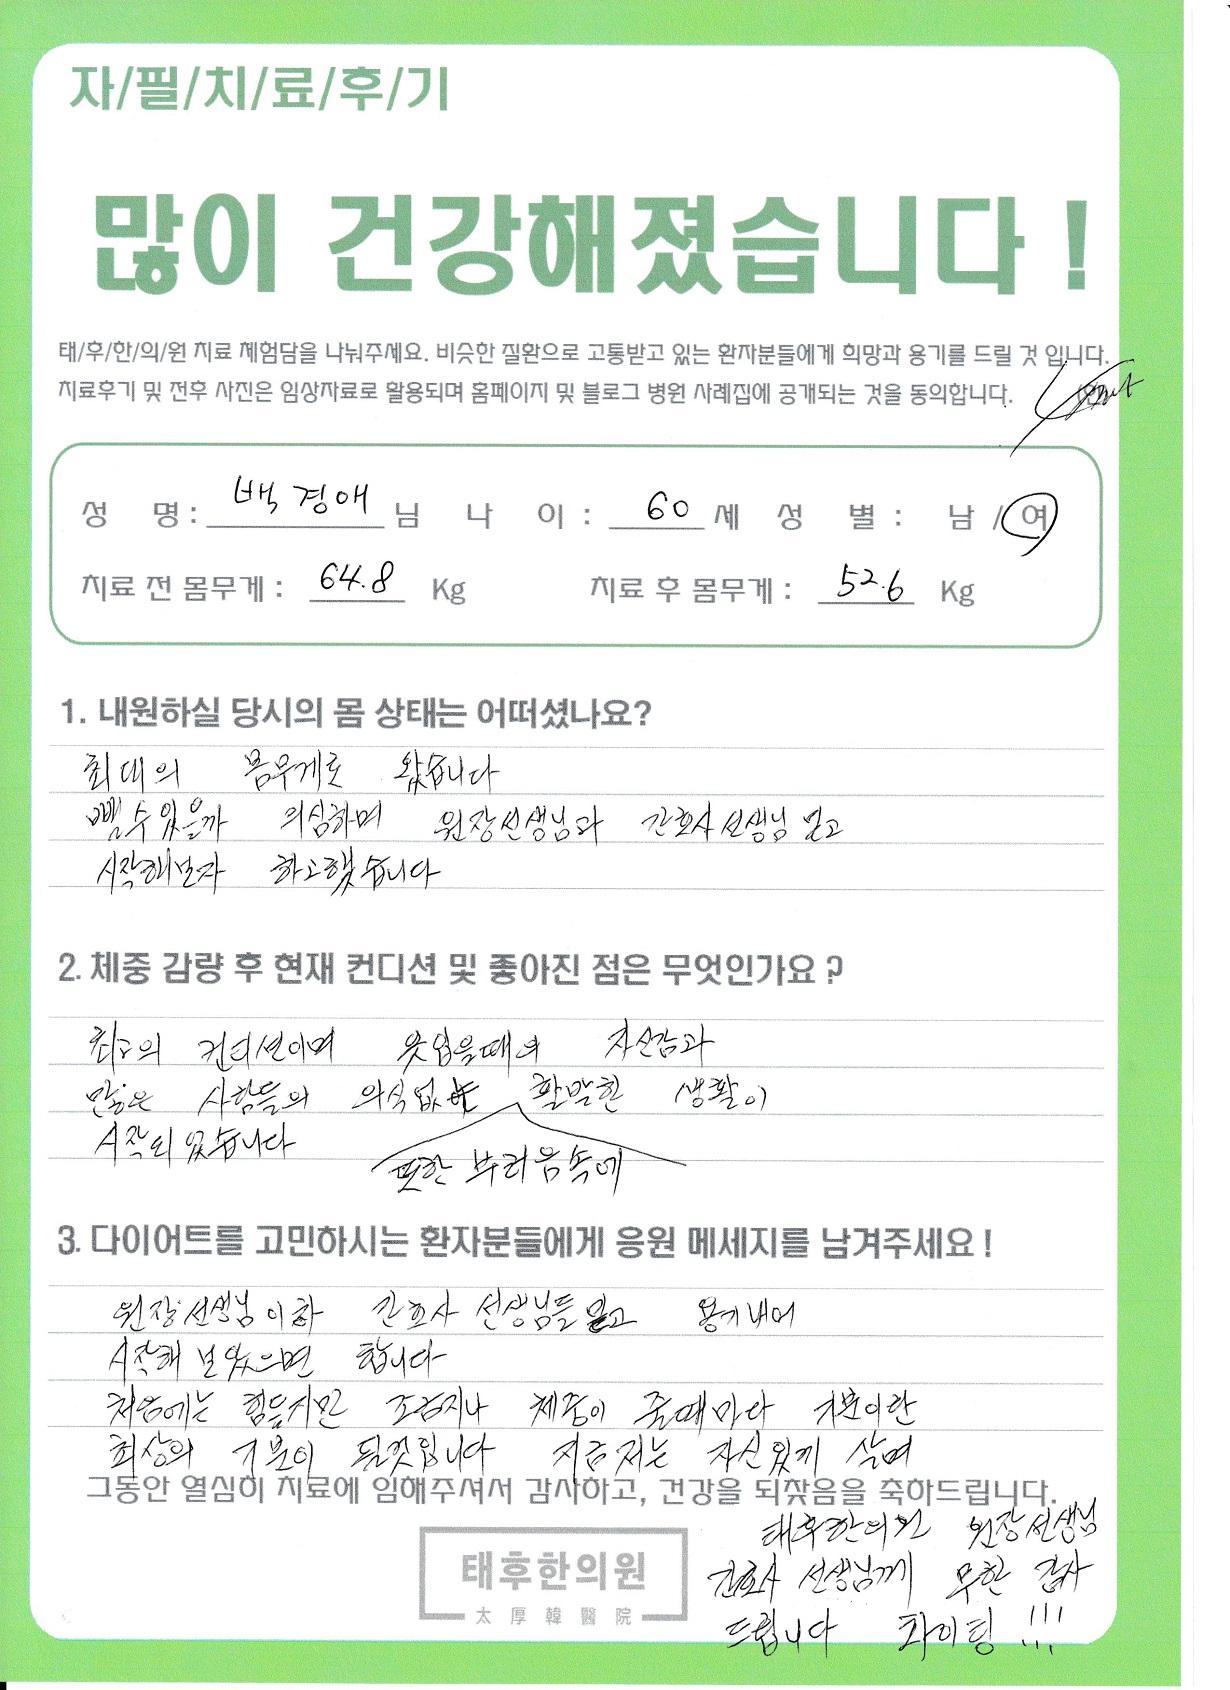 자/필/치/료/후/기
많이 건강해졌습니다!
태/후/한/의/원 치료 체험담을 나눠주세요. 비슷한 질환으로 고통받고 있는 환자분들에게 희망과 용기를 드릴 것 입니다.
치료후기 및 전후 사진은 임상자료로 활용되며 홈페이지 및 블로그 병원 사례집에 공개되는 것을 동의합니다.
성 명: 백경애 님 나 이 : 60 세 성 별 : 남 / 여
치료 전 몸무게 : 64.8 Kg 치료 후 몸무게 : 52.6 Kg
1. 내원하실 당시의 몸 상태는 어떠셨나요?
최대의 몸무게로 왔습니다
뺄수있을까 의심하며 원장선생님과 간호사선생님 믿고
시작해보자 하고했습니다
2. 체중 감량 후 현재 컨디션 및 좋아진 점은 무엇인가요?
최고의 컨디션이며 옷입을때의 자신감과
많은 사람들의 의식없는 활발한 생활이
시작되었습니다
또한 부러움속에
3. 다이어트를 고민하시는 환자분들에게 응원 메세지를 남겨주세요!
원장선생님이하 간호사 선생님들 믿고 용기내어
시작해 보았으면 합니다
처음에는 힘들지만 조금지나 체중이 줄때마다 기분이란
최상의 기분이 될것입니다 지금 저는 자신있게 살며
그동안 열심히 치료에 임해주셔서 감사하고, 건강을 되찾음을 축하드립니다.
태후한의원 원장선생님
간호사 선생님께 무한 감사
드립니다 화이팅 !!!
태후한의원
太厚韓醫院